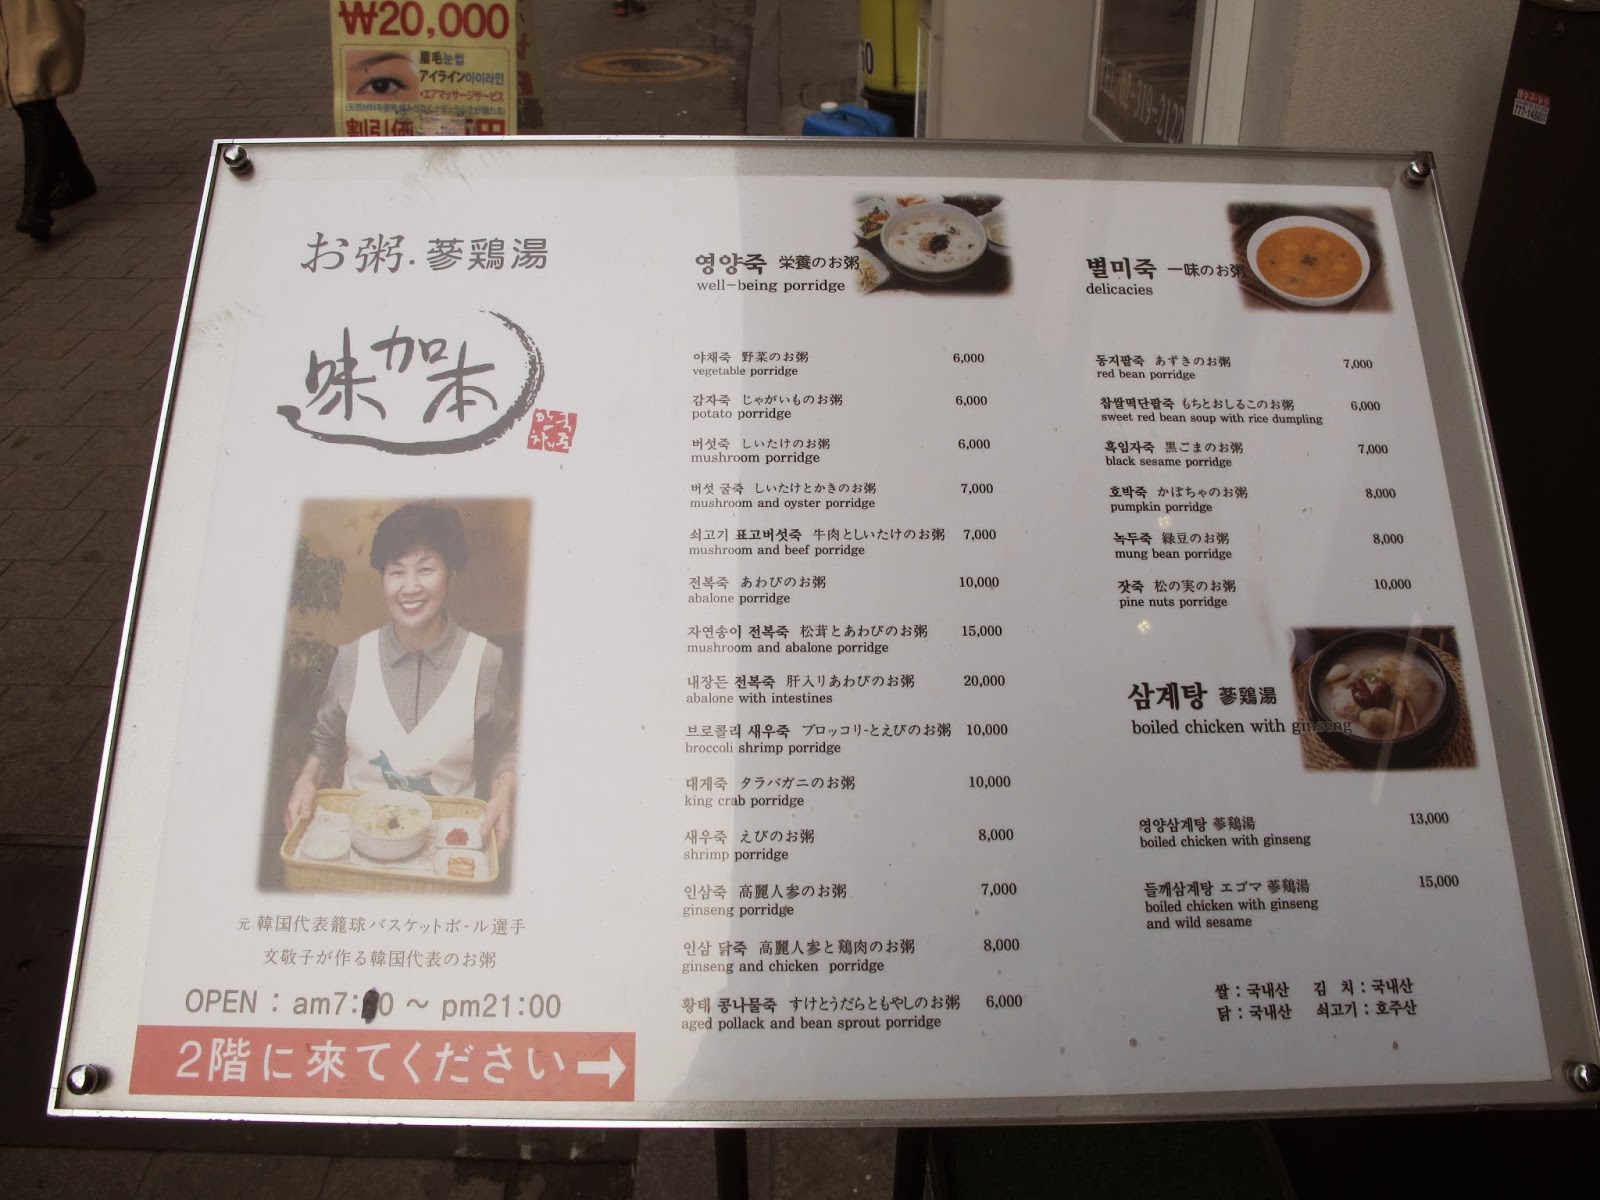 ₩20,000
眉毛눈썹
アイライン아이라인
・エアマッサージサービス
割引価
TEL 02-319-2122
お粥・蔘鶏湯
味加本
元 韓国代表籠球バスケットボール選手
文敬子が作る韓国代表のお粥
OPEN : am7: 0 ～ pm21:00
2階に來てください→
영양죽 栄養のお粥
well-being porridge
야채죽 野菜のお粥 6,000
vegetable porridge
감자죽 じゃがいものお粥 6,000
potato porridge
버섯죽 しいたけのお粥 6,000
mushroom porridge
버섯 굴죽 しいたけとかきのお粥 7,000
mushroom and oyster porridge
쇠고기 표고버섯죽 牛肉としいたけのお粥 7,000
mushroom and beef porridge
전복죽 あわびのお粥 10,000
abalone porridge
자연송이 전복죽 松茸とあわびのお粥 15,000
mushroom and abalone porridge
내장든 전복죽 肝入りあわびのお粥 20,000
abalone with intestines
브로콜리 새우죽 ブロッコリーとえびのお粥 10,000
broccoli shrimp porridge
대게죽 タラバガニのお粥 10,000
king crab porridge
새우죽 えびのお粥 8,000
shrimp porridge
인삼죽 高麗人参のお粥 7,000
ginseng porridge
인삼 닭죽 高麗人参と鶏肉のお粥 8,000
ginseng and chicken porridge
황태 콩나물죽 すけとうだらともやしのお粥 6,000
aged pollack and bean sprout porridge
별미죽 一味のお粥
delicacies
동지팥죽 あずきのお粥 7,000
red bean porridge
찹쌀떡단팥죽 もちとおしるこのお粥 6,000
sweet red bean soup with rice dumpling
흑임자죽 黒ごまのお粥 7,000
black sesame porridge
호박죽 かぼちゃのお粥 8,000
pumpkin porridge
녹두죽 緑豆のお粥 8,000
mung bean porridge
잣죽 松の実のお粥 10,000
pine nuts porridge
삼계탕 蔘鶏湯
boiled chicken with ginseng
영양삼계탕 蔘鶏湯 13,000
boiled chicken with ginseng
들깨삼계탕 エゴマ 蔘鶏湯 15,000
boiled chicken with ginseng
and wild sesame
쌀 : 국내산 김 치 : 국내산
닭 : 국내산 쇠고기 : 호주산